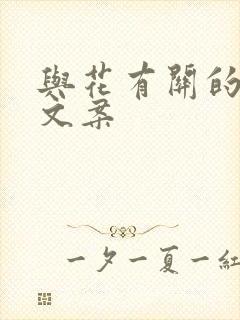 與花有關的
文案
一夕一夏一紅